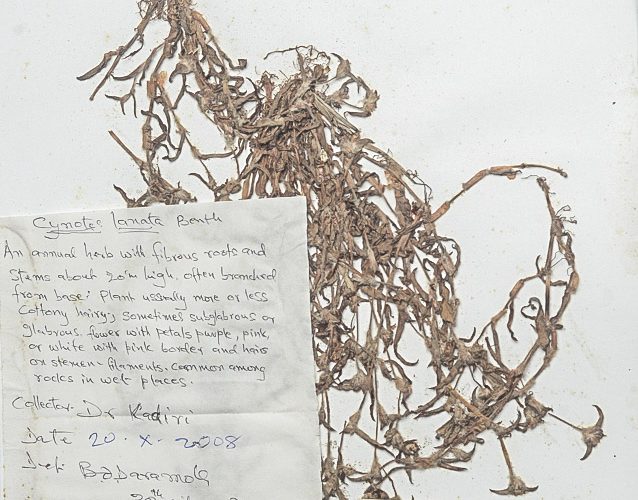 Cynotis lanata Benth
An annual herb with fibrous roots and
stems about 20cm high, often branched
from base. Plant usually more or less
cottony hairy; sometimes subglabrous or
glabrous. flower with petals purple, pink,
or white with pink border and hairs
on stamen filaments. Common among
rocks in wet places.
Collector: Dr Kadiri
Date 20. X. 2008
Det: B.O. Daramola